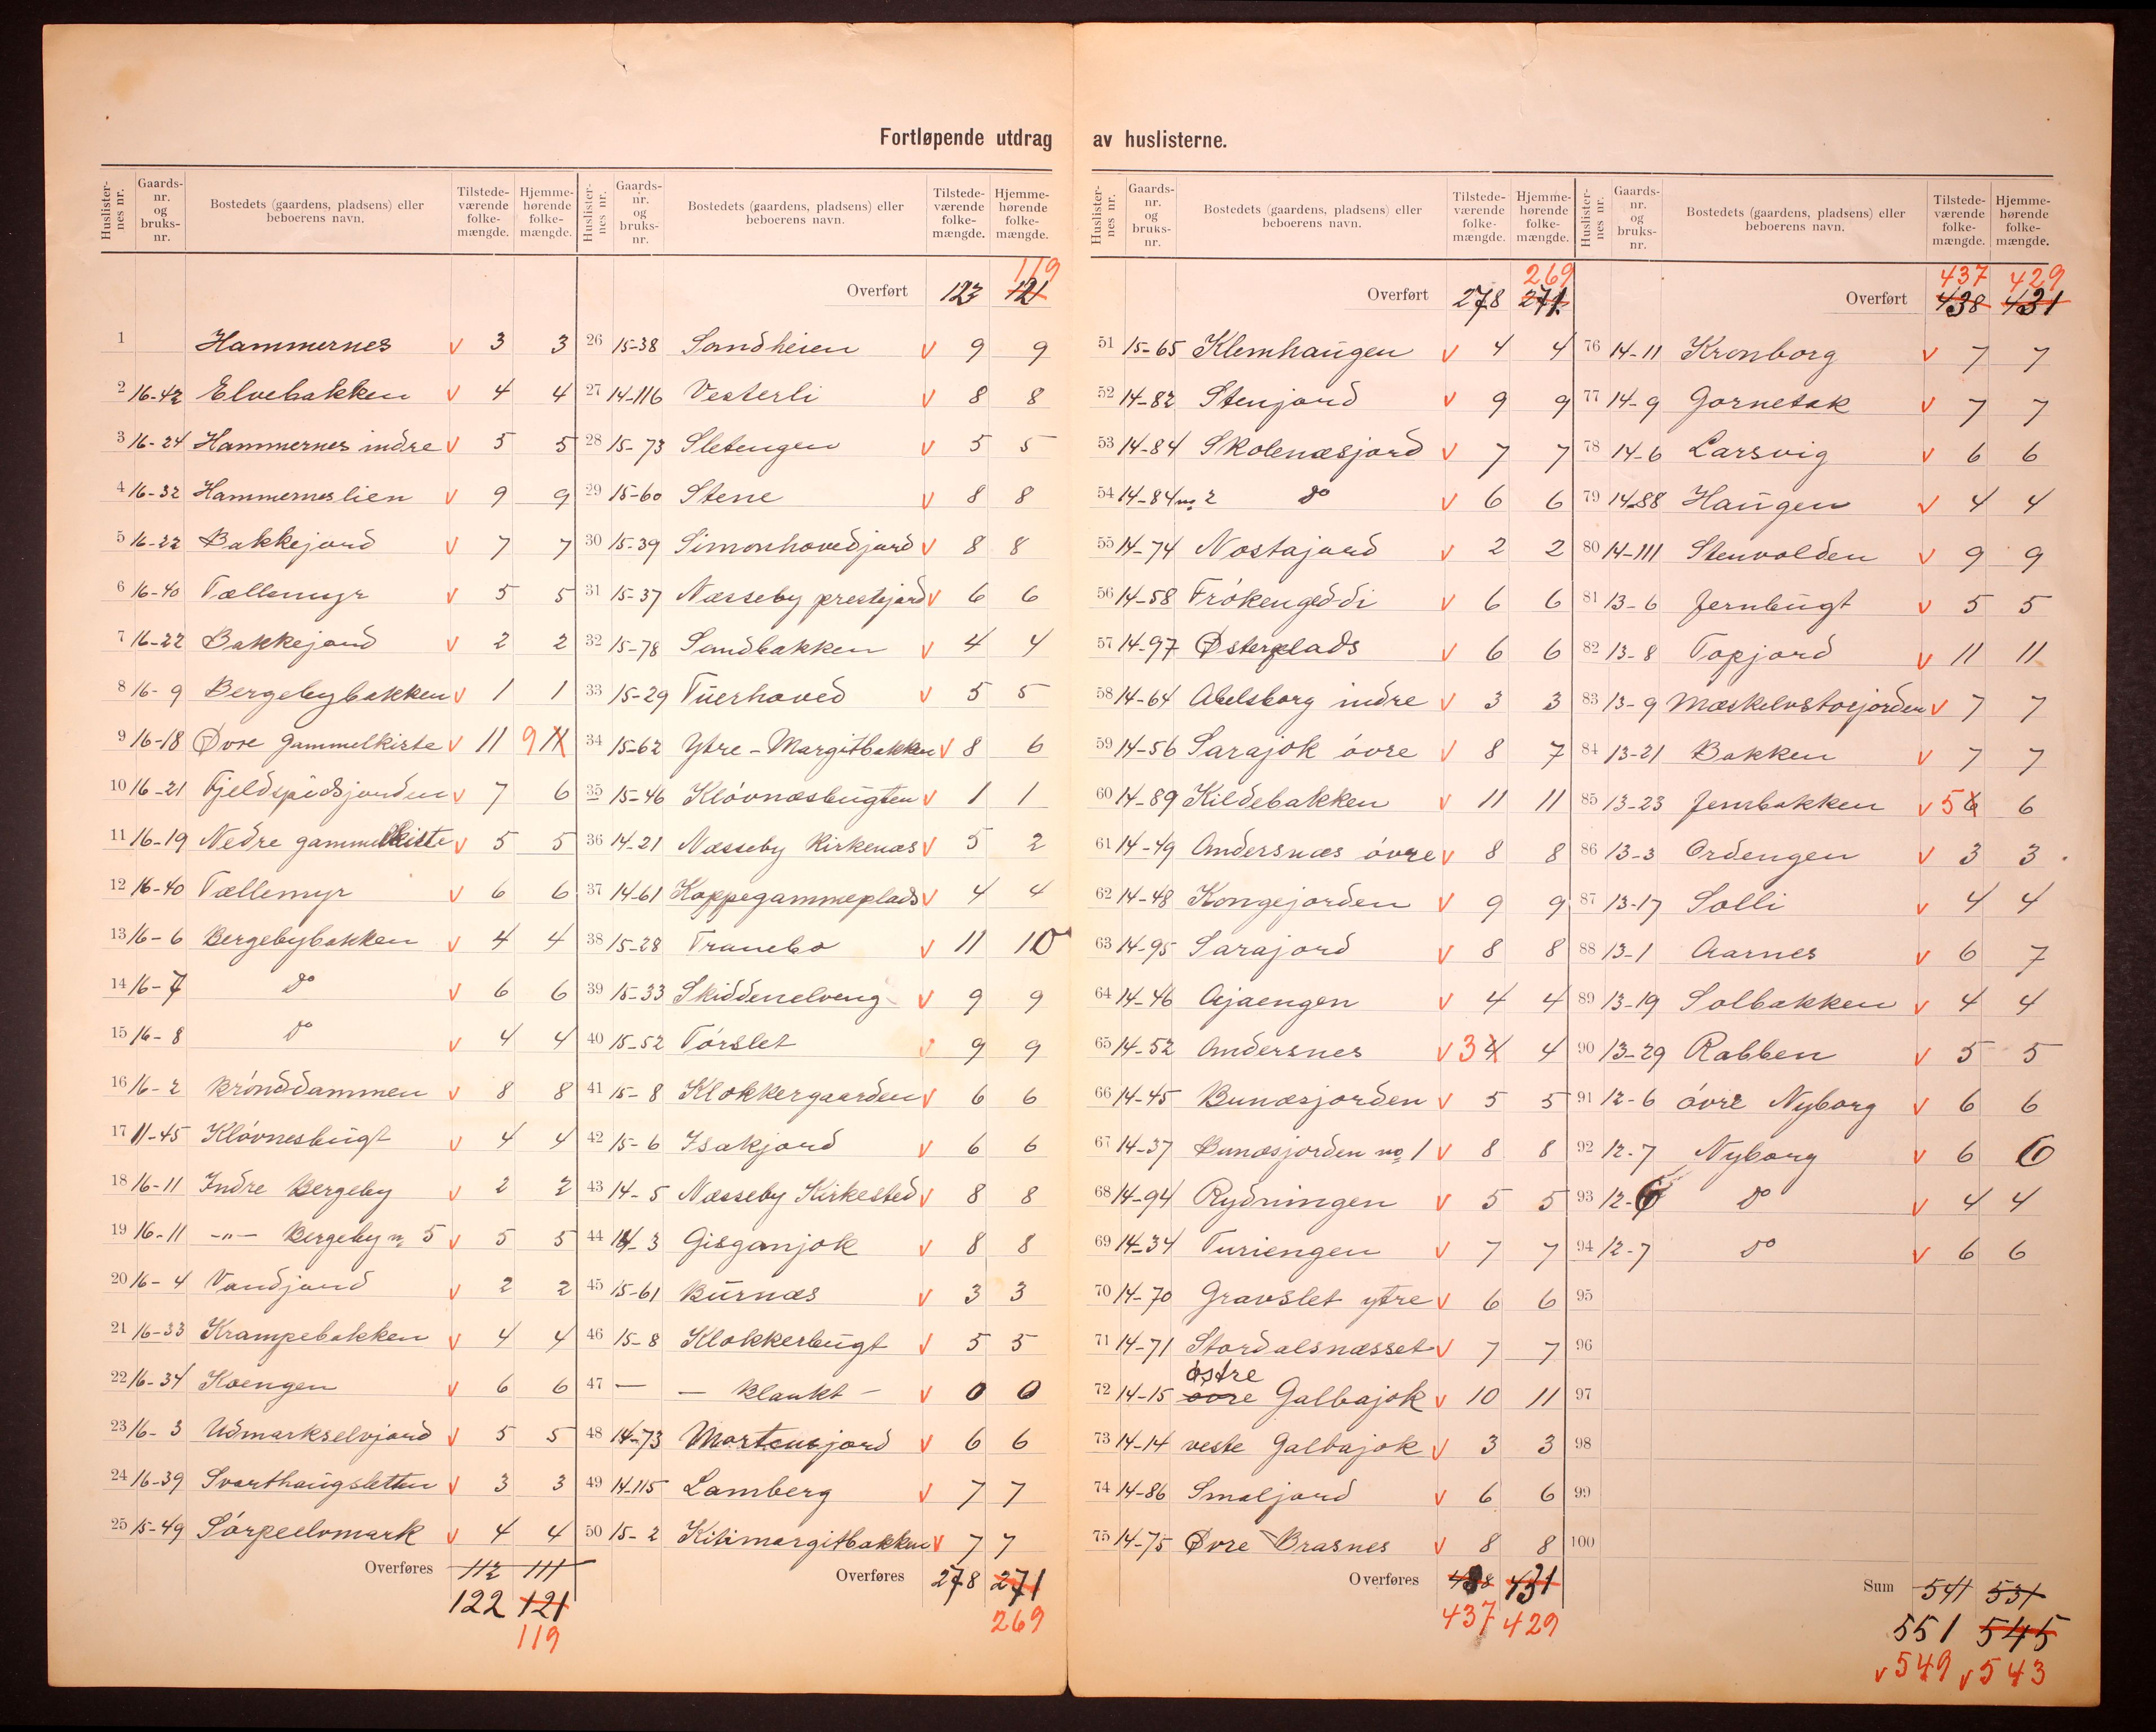 Fortløpende utdrag av huslisterne.
Huslisternes nr. | Gaards-nr. og bruks-nr. | Bostedets (gaardens, pladsens) eller beboerens navn. | Tilstedeværende folkemængde. | Hjemmehørende folkemængde.
1 Hammernes v 3 3
2 16-42 Elvebakken v 4 4
3 16-24 Hammernes indre v 5 5
4 16-32 Hammerneslien v 9 9
5 16-22 Bakkejord v 7 7
6 16-40 Tællemyr v 5 5
7 16-22 Bakkejord v 2 2
8 16-9 Bergebybakken v 1 1
9 16-18 Øvre Gammelkiste v 11 9 11
10 16-21 Fjeldspidsjorden v 7 6
11 16-19 Nedre gammelkiste v 5 5
12 16-40 Tællemyr v 6 6
13 16-6 Bergebybakken v 4 4
14 16-7 do v 6 6
15 16-8 do v 4 4
16 16-2 Brónddammen v 8 8
17 11-45 Klóvnesbugt v 4 4
18 16-11 Indre Bergeby v 2 2
19 16-11 -"- Bergeby no 5 v 5 5
20 16-4 Vandjord v 2 2
21 16-33 Krampebakken v 4 4
22 16-34 Koengen v 6 6
23 16-3 Udmarkselvjord v 5 5
24 16-39 Svarthaugsletten v 3 3
25 15-49 Sórpeelvmark v 4 4
Overføres 112 111
122 121
119
Huslisternes nr. | Gaards-nr. og bruks-nr. | Bostedets (gaardens, pladsens) eller beboerens navn. | Tilstedeværende folkemængde. | Hjemmehørende folkemængde.
119
Overført 122 121
26 15-38 Sandheien v 9 9
27 14-116 Vesterli v 8 8
28 15-73 Sletengen v 5 5
29 15-60 Stene v 8 8
30 15-39 Simonhovedjord v 8 8
31 15-37 Næsseby prestejord v 6 6
32 15-78 Sandbakken v 4 4
33 15-29 Tuerhoved v 5 5
34 15-62 Ytre-Margitbakken v 8 6
35 15-46 Klóvnæsbugten v 1 1
36 14-21 Næsseby Kirkenæs v 5 2
37 14-61 Koppegammeplads v 4 4
38 15-28 Tranebo v 11 10
39 15-33 Skiddenelveng v 9 9
40 15-52 Tórslet v 9 9
41 15-8 Klokkergaarden v 6 6
42 15-6 Isakjord v 6 6
43 14-5 Næsseby Kirkested v 8 8
44 14-3 Gisganjok v 8 8
45 15-61 Burnæs v 3 3
46 15-8 Klokkerbugt v 5 5
47 — — Blankt — v 0 0
48 14-73 Mortensjord v 6 6
49 14-115 Lamberg v 7 7
50 15-2 Kitimargitbakken v 7 7
Overføres 278 271
269
Huslisternes nr. | Gaards-nr. og bruks-nr. | Bostedets (gaardens, pladsens) eller beboerens navn. | Tilstedeværende folkemængde. | Hjemmehørende folkemængde.
269
Overført 278 271
51 15-65 Klemhaugen v 4 4
52 14-82 Stenjord v 9 9
53 14-84 Skolenæsjord v 7 7
54 14-84 no 2 do v 6 6
55 14-74 Nostajord v 2 2
56 14-58 Frókengeddi v 6 6
57 14-97 Østerplads v 6 6
58 14-64 Abelsborg indre v 3 3
59 14-56 Sarajok óvre v 8 7
60 14-89 Kildebakken v 11 11
61 14-49 Andersnæs óvre v 8 8
62 14-48 Kongejorden v 9 9
63 14-95 Sarajord v 8 8
64 14-46 Ajaengen v 4 4
65 14-52 Andersnes v 3 4 4
66 14-45 Bunæsjorden v 5 5
67 14-37 Bunæsjorden no 1 v 8 8
68 14-94 Rydningen v 5 5
69 14-34 Turiengen v 7 7
70 14-70 Gravslet ytre v 6 6
71 14-71 Stordalsnæsset v 7 7
óstre
72 14-15 óvre Galbajok v 10 11
73 14-14 veste Galbajok v 3 3
74 14-86 Smaljord v 6 6
75 14-75 Øvre Brasnes v 8 8
Overføres 438 431
437 429
Huslisternes nr. | Gaards-nr. og bruks-nr. | Bostedets (gaardens, pladsens) eller beboerens navn. | Tilstedeværende folkemængde. | Hjemmehørende folkemængde.
437 429
Overført 438 431
76 14-11 Kronborg v 7 7
77 14-9 Gornetak v 7 7
78 14-6 Larsvig v 6 6
79 14-88 Haugen v 4 4
80 14-111 Stenvolden v 9 9
81 13-6 Jernbugt v 5 5
82 13-8 Topjord v 11 11
83 13-9 Mæskelvstosjorden v 7 7
84 13-21 Bakken v 7 7
85 13-23 Jensbakken v 5 6 6
86 13-3 Ordengen v 3 3
87 13-17 Solli v 4 4
88 13-1 Aarnes v 6 7
89 13-19 Solbakken v 4 4
90 13-29 Rabben v 5 5
91 12-6 óvre Nyborg v 6 6
92 12-7 Nyborg v 6 6
93 12- do v 4 4
94 12-7 do v 6 6
95
96
97
98
99
100
Sum 541 531
551 545
v 549 v 543